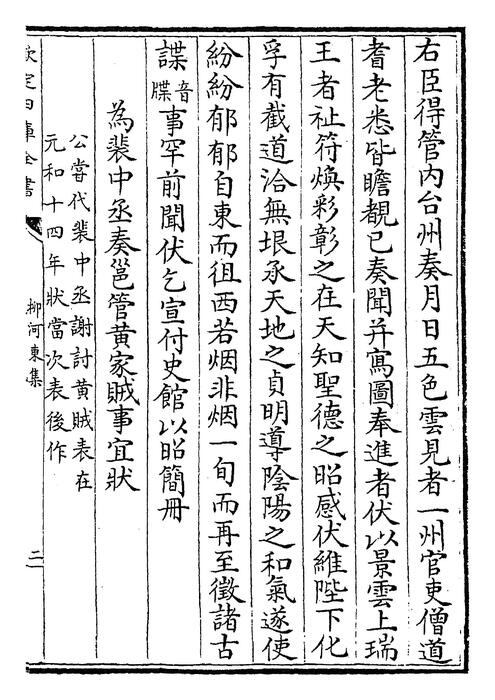 右臣得管内台州奏月日五色雲見者一州官吏僧道
耆老悉皆瞻覩已奏聞并寫圖奉進者伏以景雲上瑞
王者祉符煥彩彰之在天知聖德之昭感伏維陛下化
孚有截道洽無垠承天地之貞明導陰陽之和氣遂使
紛紛郁郁自東而徂西若烟非烟一旬而再至徵諸古
諜音牒事罕前聞伏乞宣付史館以昭簡冊
為裴中丞奏邕管黄家賊事宜狀
公當代裴中丞謝討黄賊表在
元和十四年狀當次表後作
欽定四庫全書
柳河東集
二